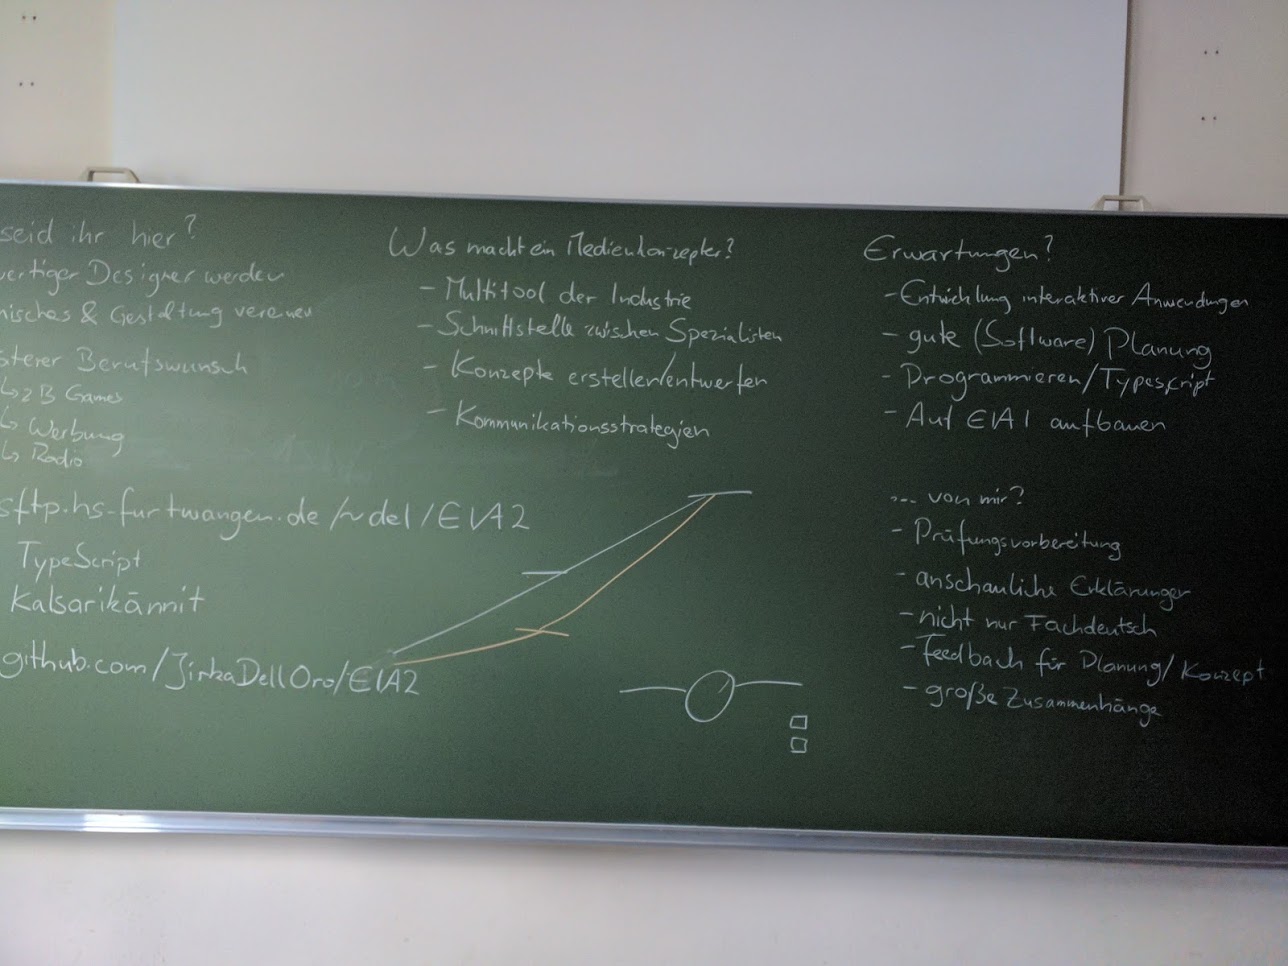 seid ihr hier?
wertiger Designer werden
nisches & Gestaltung vereinen
äterer Berufswunsch
↳ z B Games
↳ Werbung
↳ Radio
sftp.hs-furtwangen.de/~del/EIA2
TypeScript
Kalsarikännit
github.com/JirkaDellOro/EIA2
Was macht ein Medienkonzepter?
- Multitool der Industrie
- Schnittstelle zwischen Spezialisten
- Konzepte erstellen/entwerfen
- Kommunikationsstrategien
Erwartungen?
- Entwicklung interaktiver Anwendungen
- gute (Software) Planung
- Programmieren/Typescript
- Auf EIA1 aufbauen
... von mir?
- Prüfungsvorbereitung
- anschauliche Erklärungen
- nicht nur Fachdeutsch
- Feedback für Planung/Konzept
- große Zusammenhänge